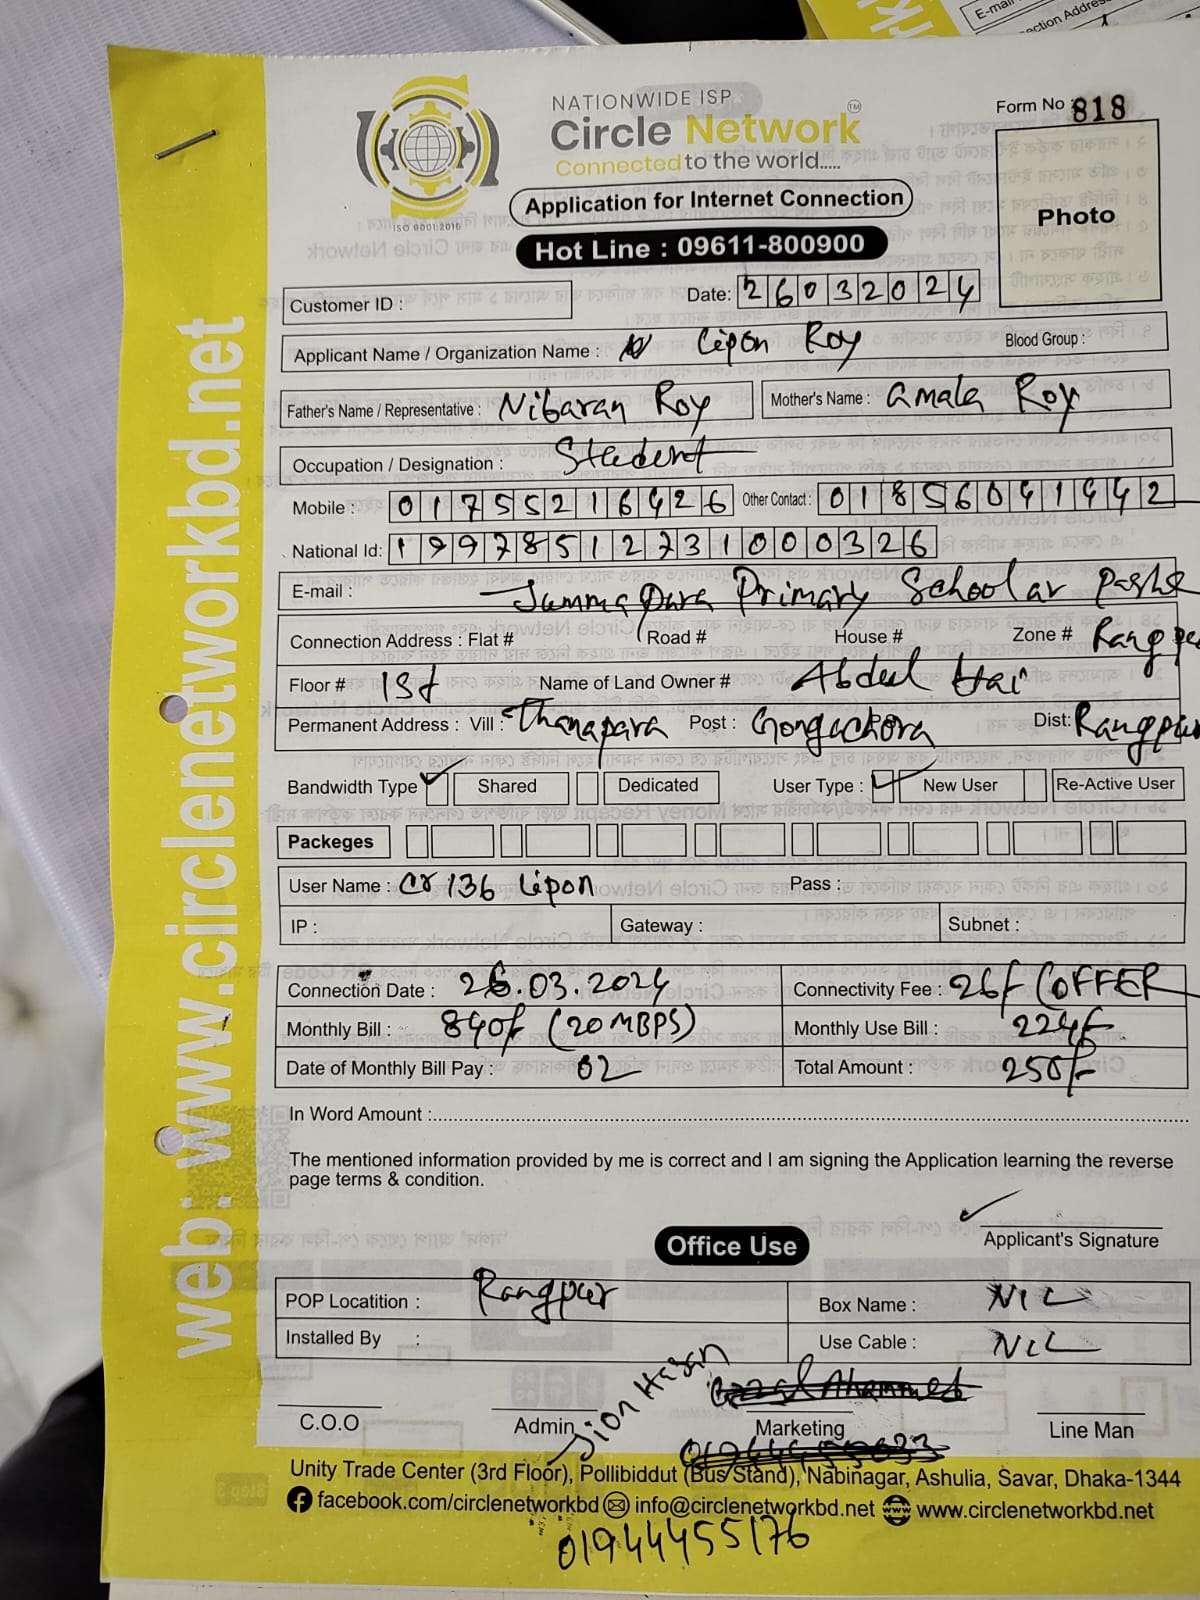 NATIONWIDE ISP
Circle Network TM
Connected to the world.....
ISO 9001:2015
Form No 818
Photo
Application for Internet Connection
Hot Line : 09611-800900
Customer ID :
Date: 26032024
Applicant Name / Organization Name : Lipon Roy
Blood Group :
Father's Name / Representative : Nibaran Roy
Mother's Name : Amala Roy
Occupation / Designation : Student
Mobile : 01755216426
Other Contact : 01856041442
National Id: 19978512731000326
E-mail :
Jummapara Primary School ar Pashe
Connection Address : Flat # Road # House # Zone # Rangpur
Floor # 1st Name of Land Owner # Abdul Hai
Permanent Address : Vill : Thanapara Post : Gongachora Dist: Rangpur
Bandwidth Type ✓ Shared Dedicated User Type : ✓ New User Re-Active User
Packeges
User Name : Cr 136 Lipon Pass :
IP : Gateway : Subnet :
Connection Date : 26.03.2024 Connectivity Fee : 26/- (OFFER
Monthly Bill : 840/- (20 MBPS) Monthly Use Bill : 224/-
Date of Monthly Bill Pay : 02 Total Amount : 250/-
In Word Amount :
The mentioned information provided by me is correct and I am signing the Application learning the reverse
page terms & condition.
Applicant's Signature
Office Use
POP Locatition : Rangpur Box Name : NIL
Installed By : Use Cable : NIL
Jion Hasan
C.O.O Admin Marketing Line Man
Unity Trade Center (3rd Floor), Pollibiddut (Bus Stand), Nabinagar, Ashulia, Savar, Dhaka-1344
facebook.com/circlenetworkbd info@circlenetworkbd.net www.circlenetworkbd.net
01944455176
web: www.circlenetworkbd.net